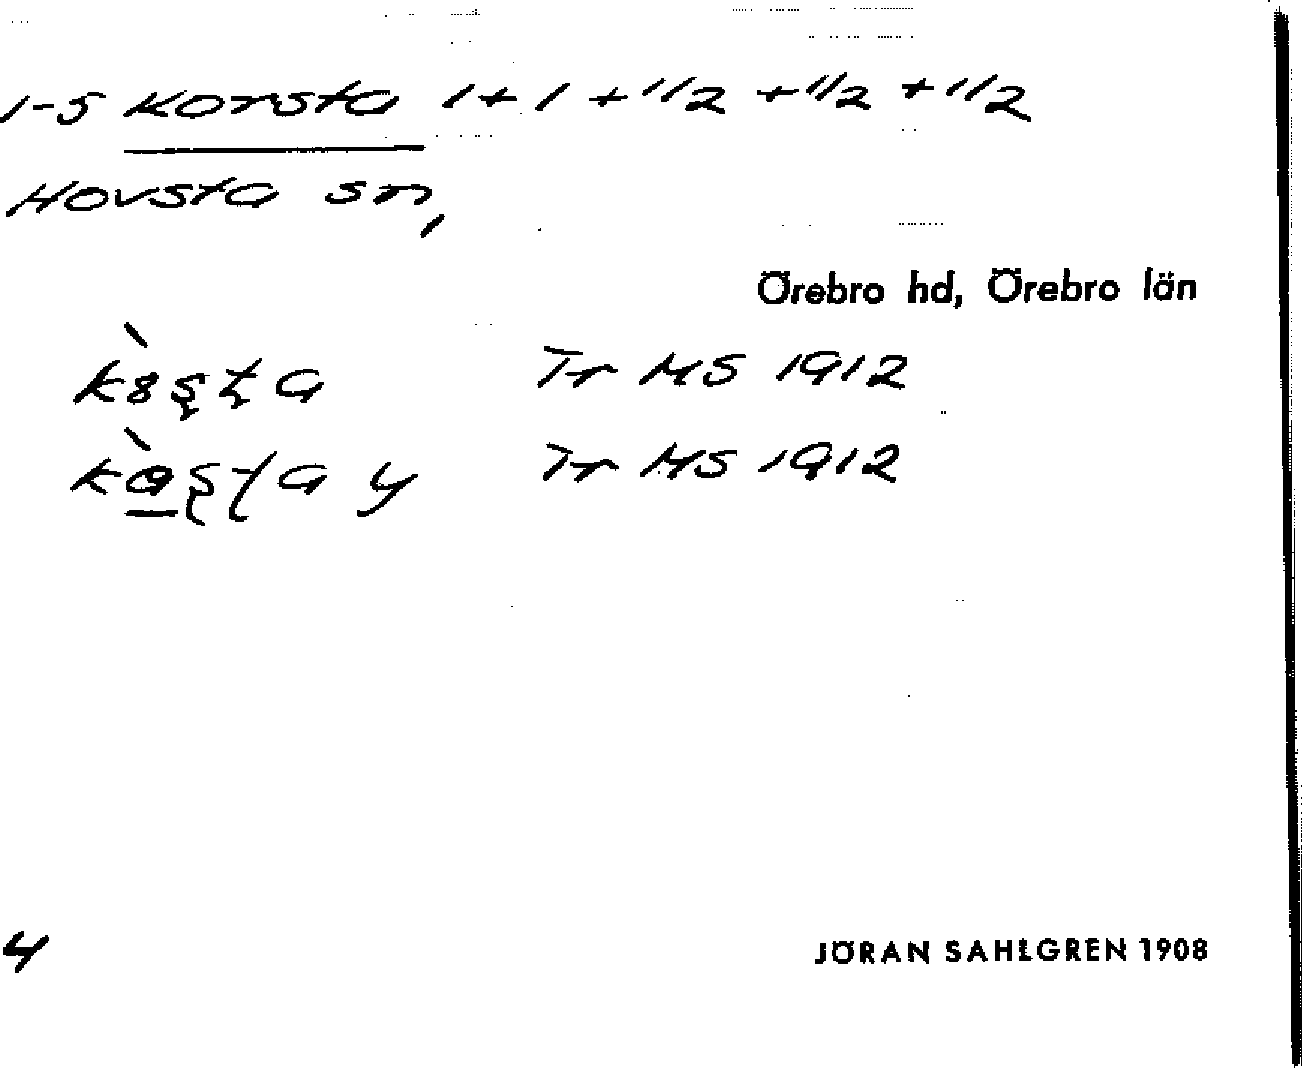 1-5 Korsta 1+1+1/2+1/2+1/2
Hovsta sn,
Örebro hd, Örebro län
Tr MS 1912
y Tr MS 1912
4
JÖRAN SAHLGREN 1908